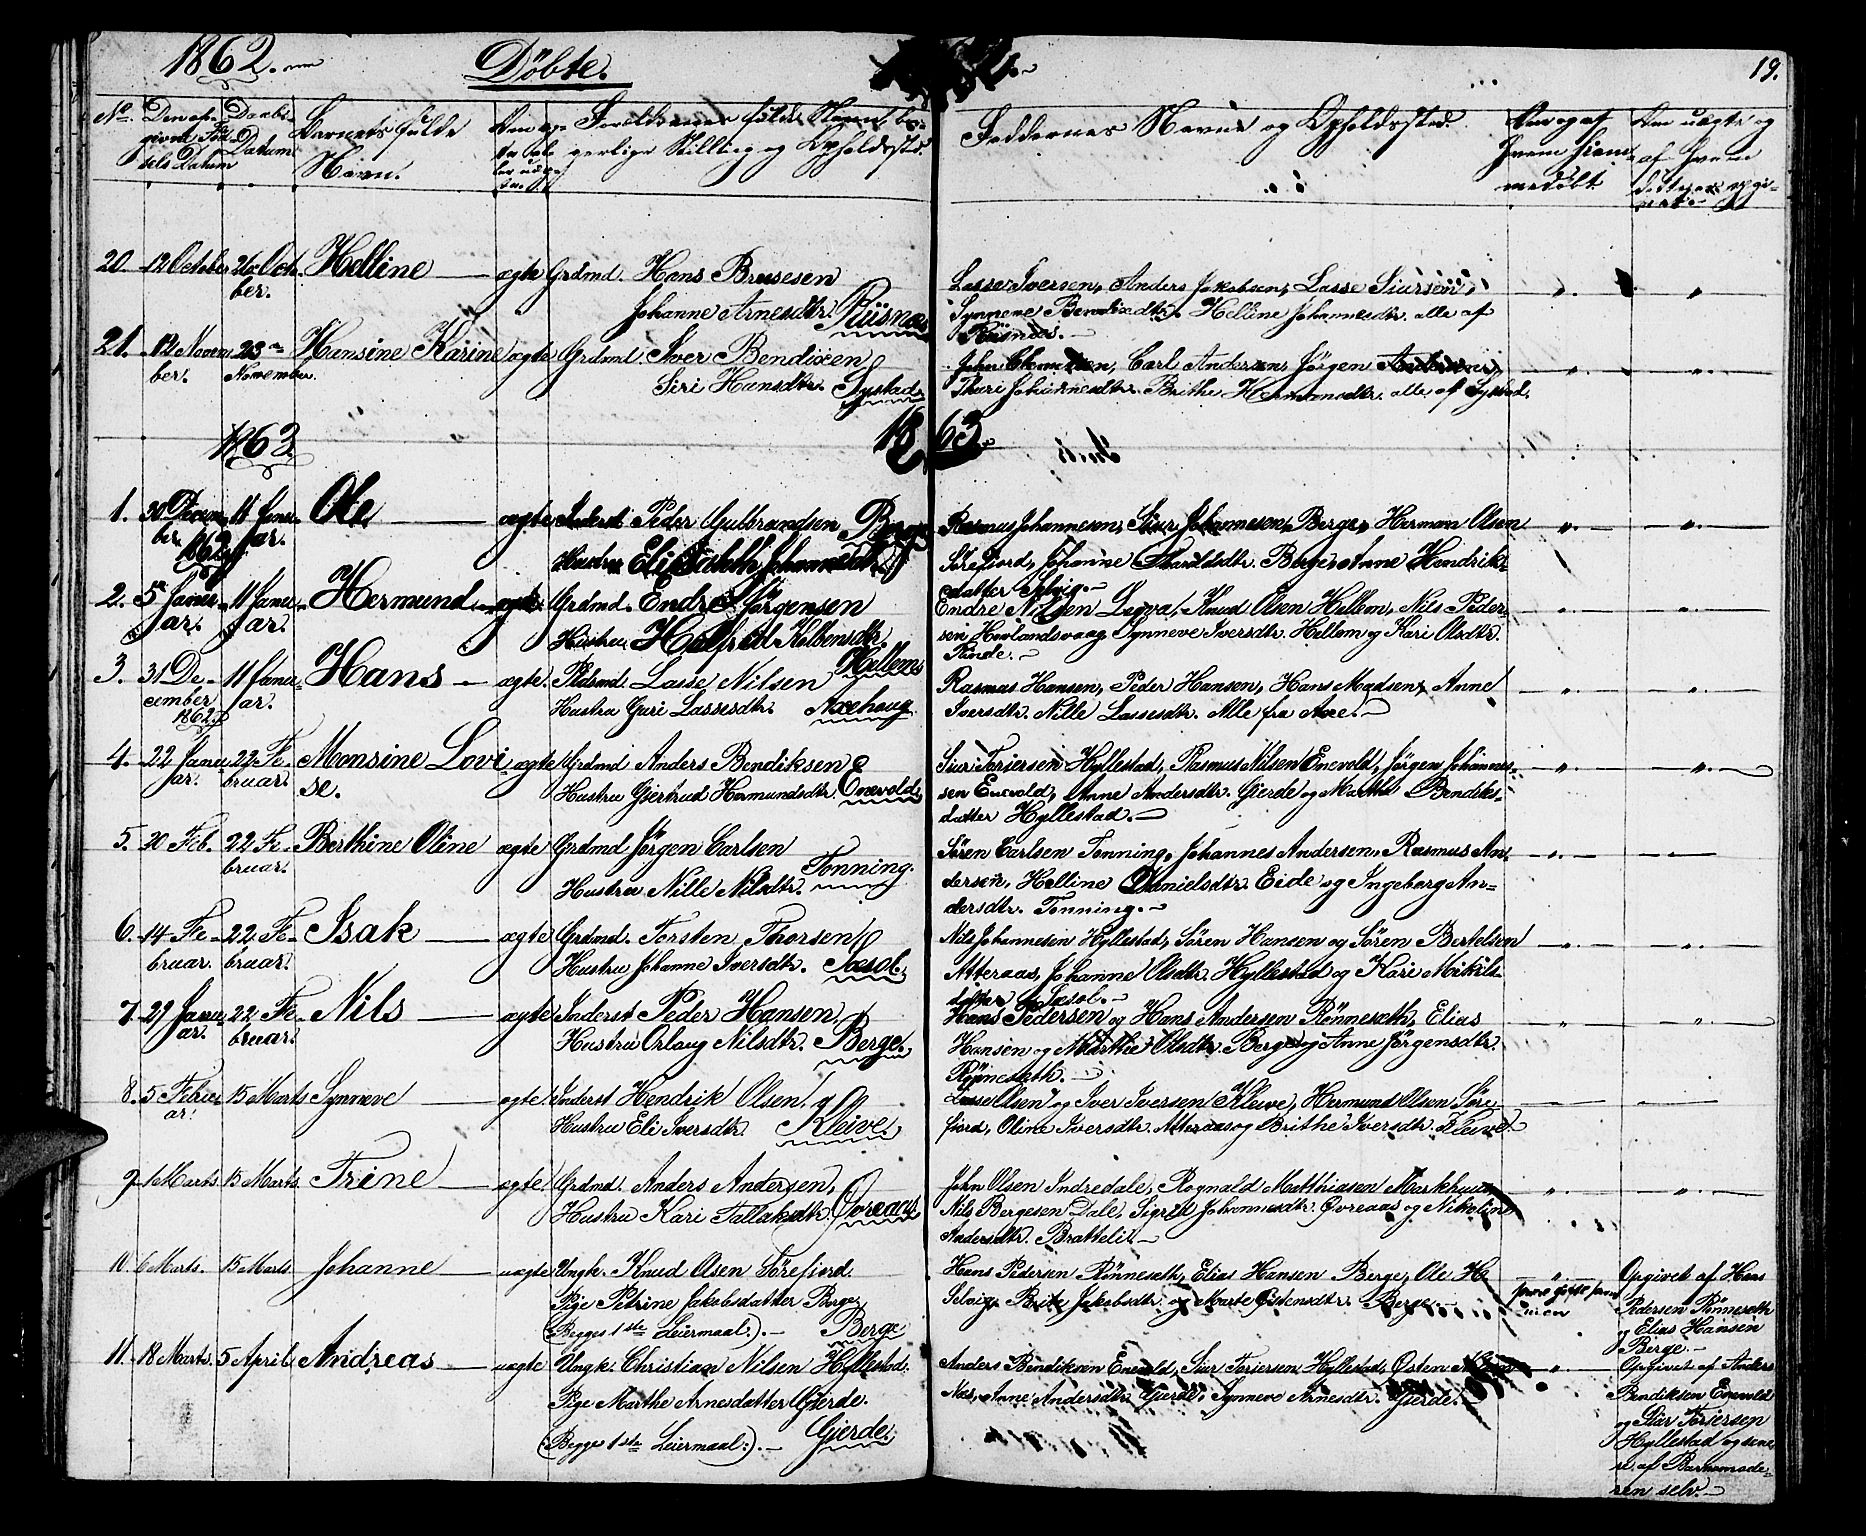 1862.
Döbte.
19.
No. Barnets fulde Navn. Forældrenes fulde Navne, borgerlige Stilling og Opholdssted. Faddernes Navne og Opholdssted.
20. 12 October 26 October. Helline ægte Grdmd. Hans Brusesen
Johanne Arnesdtr. Riisnæs
Lasse Iversen, Anders Jakobsen, Lasse Siursen,
Synneve Bendixdtr. Helline Johannesdtr. alle af
Riisnæs.
21. 12 November. 23 November. Hansine Karine ægte Grdmd. Iver Bendixen
Siri Hansdtr. Systad
John Carl Andersen, Jörgen Andersen,
Thuri Johannesdtr. Brithe Hermansdtr. alle af Systad.
1863.
1863
1. 30 December 1862 11 Januar. Ole ægte Inderst Peder Gulbrandsen Berge
Hustru Elisabeth Johannesdtr.
Rasmus Johannesen, Siur Johannesen, Berge, Herman Olsen
Sörefiord, Johanne Berge, Anne Hendriks-
datter Selvig.
2. 5 Januar. 11 Januar. Hermund ægte Grdmd. Endre Jörgensen
Hustru Kolbensdtr.
Hellem
Endre Nilsen Losva, Knud Olsen Hellem, Nils Peder-
sen Hovlandsvaag Synneve Iversdtr. Hellem og Kari Olsdtr.
Rinde.
3. 31 December 1862 11 Januar. Hans ægte. Pldsmd. Lasse Nilsen
Hustru Guri Lassesdtr. Axehaug
Rasmus Hansen, Peder Hansen, Hans Madsen, Anne
Iversdtr. Nille Lassesdtr. Alle fra Axe.
4. 22 Januar. 22 Februar. Monsine Lovise. ægte Grdmd Anders Bendiksen
Hustru Gjertrud Hermundsdtr. Enevold
Siur Toriersen Hyllestad, Rasmus Nilsen Enevold, Jörgen Johannes-
sen Enevold, Anne Andersdtr. Gierde og Marthe Bendiks-
datter Hyllestad.
5. 20 Feb. 22 Februar. Berthine Oline ægte Grdmd Jörgen Carlsen
Tonning.
Hustru Nille Nilsdtr.
Sören Carlsen Tonning, Johannes Andersen, Rasmus An-
dersen, Helline Danielsdtr. Eide og Ingeborg An-
dersdtr. Tonning.
6. 14 Februar. 22 Februar. Isak ægte Grdmd. Torsten Thorsen
Hustru Johanne Iversdtr. Sæsol.
Nils Johannesen Hyllestad, Sören Hansen og Sören Bertelsen
Atteraas, Johanne Olsdtr. Hyllestad og Kari Mikils-
datter Sæsol.
7. 29 Januar. 22 Februar. Nils ægte Inderst Peder Hansen,
Hustru Orlaug Nilsdtr. Berge.
Hans Pedersen og Hans Andersen Rönneseth, Elias
Hansen og Marthe Olsdtr. Berge og Anne Jörgensdtr.
Rönneseth.
8. 5 Februar. 15 Marts Synneve ægte. Inderst Hendrik Olsen,
Hustru Eli Iversdtr. Kleive.
Lasse Olsen og Iver Iversen Kleive, Hermund Olsen Söre-
fiord, Oline Iversdtr. Atteraas og Brithe Iversdtr. Kleive.
9. 1 Marts 15 Marts. Trine ægte. Grdmd. Anders Andersen,
Hustru Kari Tallaksdtr. Ovreaas
John Olsen Indredale, Rognald Matthiasen Markhuus
Nils Bergesen Dale, Sigrid Johannesdtr. Ovreaas og Nikoline
Andersdtr. Brattelid
10. 6 Marts. 15 Marts Johanne uægte Ungk. Knud Olsen Sörefiord.
Pige Petrine Jakobsdatter Berge.
(Begges 1ste Leiermaal.). Berge
Hans Pedersen Rönneseth, Elias Hansen Berge, Ole
Selvig, Brite Jakobsdtr. og Marte Östensdtr. Berge
Opgivet af Hans
Pedersen Rönneseth
Elias Hansen
Berge.
11. 18 Marts. 5 April Andreas uægte Ungk. Christian Nilsen Hyllestad.
Pige Marthe Arnesdatter Gjerde.
(Begge 1ste Leiermaal.). Gjerde.
Anders Bendiksen Enevold, Siur Toriersen Hyllestad, Östen
Næs, Anne Andersdtr. Gierde, Synneve Arnesdtr. Gierde.
Opgivet af Anders
Bendiksen Enevold
og Siur Toriersen
Hyllestad og sene-
re af Barnemode-
ren selv.